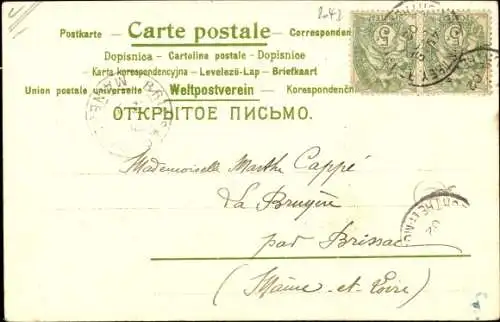 2-42
Postkarte — Carte postale — Corresponden
Dopisnica — Cartolina postale - Dopisnice
Karta korespondencyjna — Levelezö-Lap — Briefkaart
Union postale universelle Weltpostverein — Korespondenčn
ОТКРЫТОЕ ПИСЬМО.
5 5
Mademoiselle Marthe Cappé
La Bruyère
par Brissac
(Maine-et-Loire)